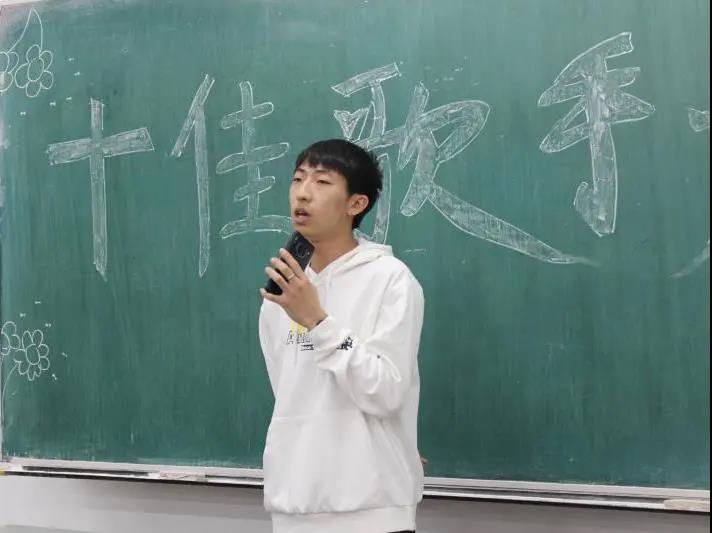 十佳歌手